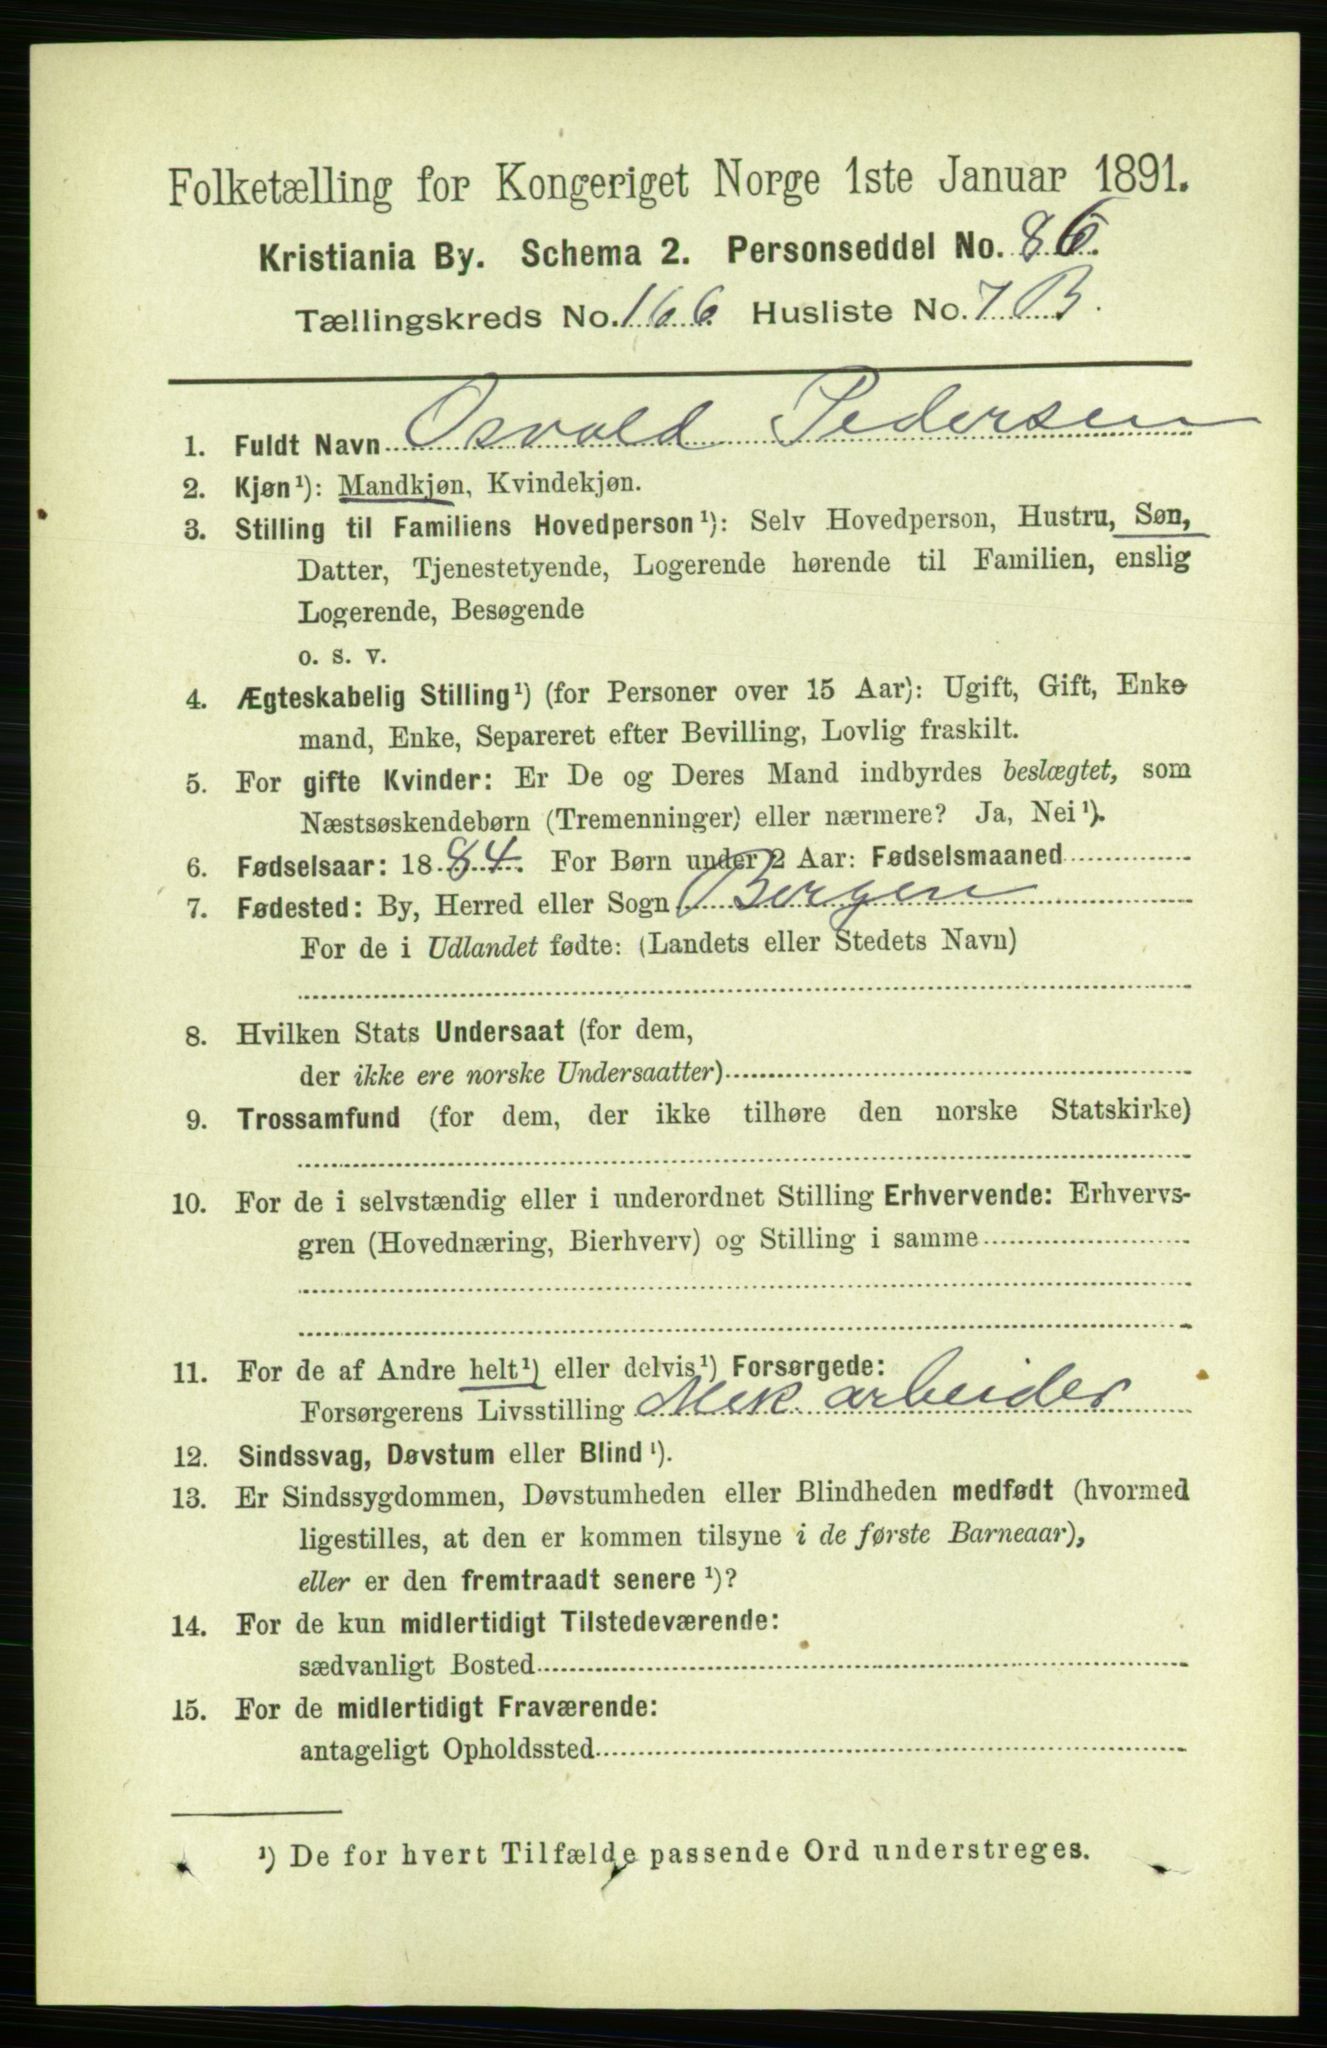 Folketælling for Kongeriget Norge 1ste Januar 1891.
Kristiania By. Schema 2. Personseddel No. 86.
Tællingskreds No. 166 Husliste No. 7 B.
1. Fuldt Navn Osvald Pedersen
2. Kjøn¹): Mandkjøn, Kvindekjøn.
3. Stilling til Familiens Hovedperson¹): Selv Hovedperson, Hustru, Søn,
Datter, Tjenestetyende, Logerende hørende til Familien, enslig
Logerende, Besøgende
o. s. v.
4. Ægteskabelig Stilling¹) (for Personer over 15 Aar): Ugift, Gift, Enke-
mand, Enke, Separeret efter Bevilling, Lovlig fraskilt.
5. For gifte Kvinder: Er De og Deres Mand indbyrdes beslægtet, som
Næstsøskendebørn (Tremenninger) eller nærmere? Ja, Nei¹).
6. Fødselsaar: 1884. For Børn under 2 Aar: Fødselsmaaned
7. Fødested: By, Herred eller Sogn Bergen
For de i Udlandet fødte: (Landets eller Stedets Navn)
8. Hvilken Stats Undersaat (for dem,
der ikke ere norske Undersaatter)
9. Trossamfund (for dem, der ikke tilhøre den norske Statskirke)
10. For de i selvstændig eller i underordnet Stilling Erhvervende: Erhvervs-
gren (Hovednæring, Bierhverv) og Stilling i samme
11. For de af Andre helt¹) eller delvis¹) Forsørgede:
Forsørgerens Livsstilling Mek. arbeider
12. Sindssvag, Døvstum eller Blind¹).
13. Er Sindssygdommen, Døvstumheden eller Blindheden medfødt (hvormed
ligestilles, at den er kommen tilsyne i de første Barneaar),
eller er den fremtraadt senere¹)?
14. For de kun midlertidigt Tilstedeværende:
sædvanligt Bosted
15. For de midlertidigt Fraværende:
antageligt Opholdssted
¹) De for hvert Tilfælde passende Ord understreges.